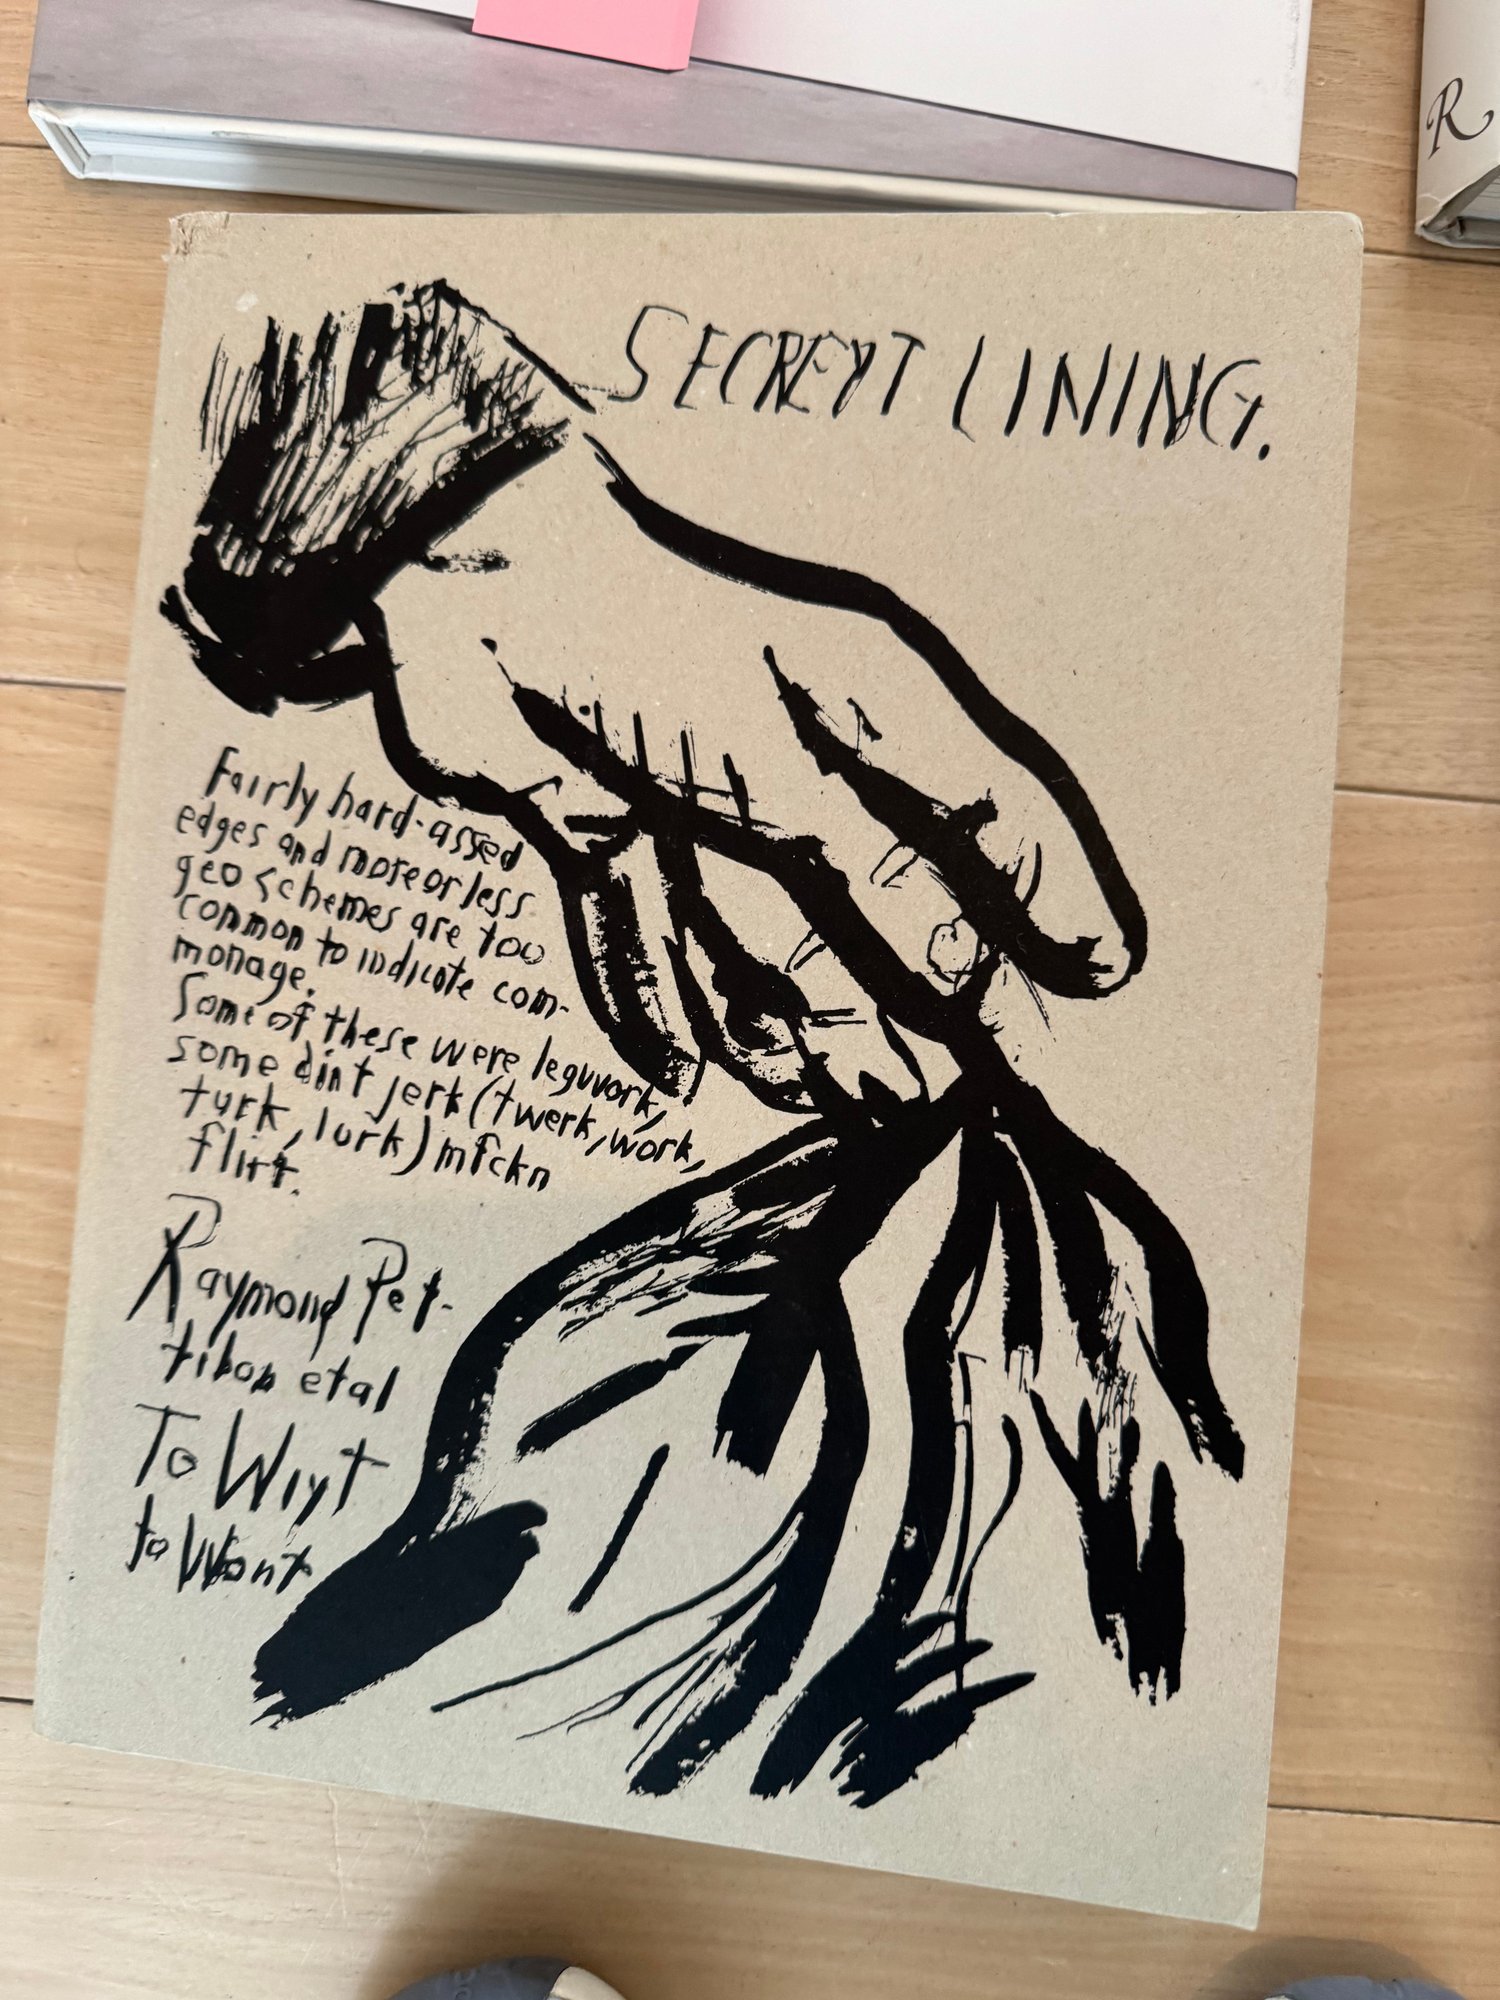 R
SECREYT LINING.
Fairly hard-assed
edges and moreorless
geo schemes are too
common to indicate com-
monage.
Some of these were legwork,
some din't jerk (twerk, work,
turk, lurk) mfckn
flirt.
Raymond Pet-
tibon etal
To Wiyt
to Want